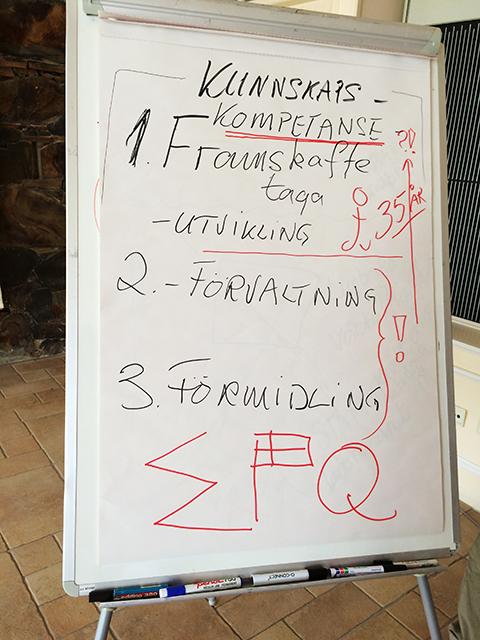 KUNNSKAPS-
KOMPETANSE
1. Framskaffe
taga
-UTVIKLING
35 ÅR
?!
2. - FÖRVALTNING
!
3. FÖRMIDLING
Q-CONNECT